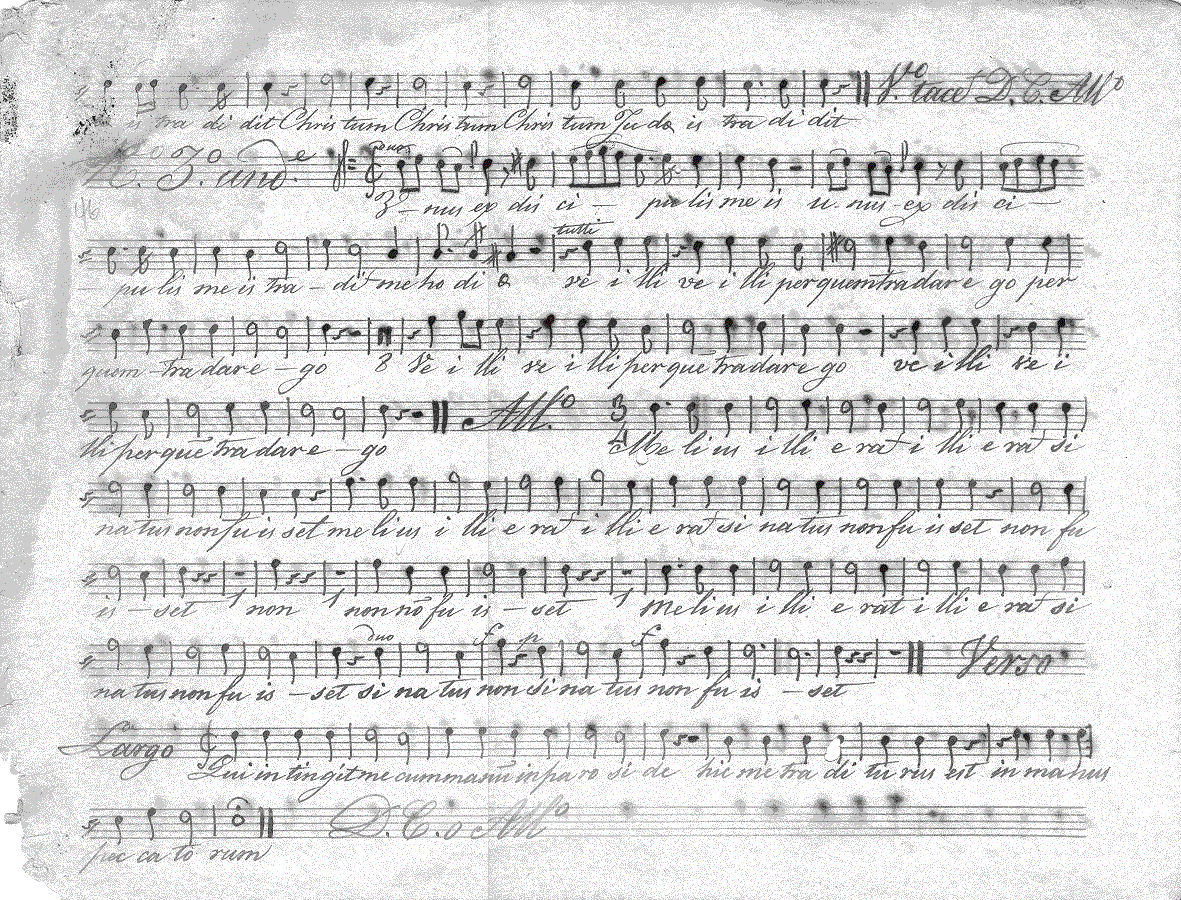 is tra di dit Chris tum Chris tum Chris tum Ju da is tra di dit Vº tacet D.C. Allº
Rº. 3º. uno.
duo
U - nus ex dis ci - pu lis me is u - nus ex dis ci -
tutti
pu lis me is tra - dit me ho di e ve i lli ve i lli per quem tra dar e go per
quem - tra dar e - go 8 ve i lli ve i lli per quē tra dar e go ve i lli ve i
lli per quē tra dar e - go Allº 3 4 Me li us i lli e rat i lli e rat si
na tus non fu is set me li us i lli e rat i lli e rat si na tus non fu is set non fu
is - set 1 non 1 non nō fu is - set 1 me li us i lli e rat i lli e rat si
duo f p f Verso
na tus non fu is - set si na tus non si na tus non fu is - set
Largo
Qui in tin git me cum manū in pa ro si de hic me tra di tu rus est in ma nus
pec ca to rum D.C. o Allº